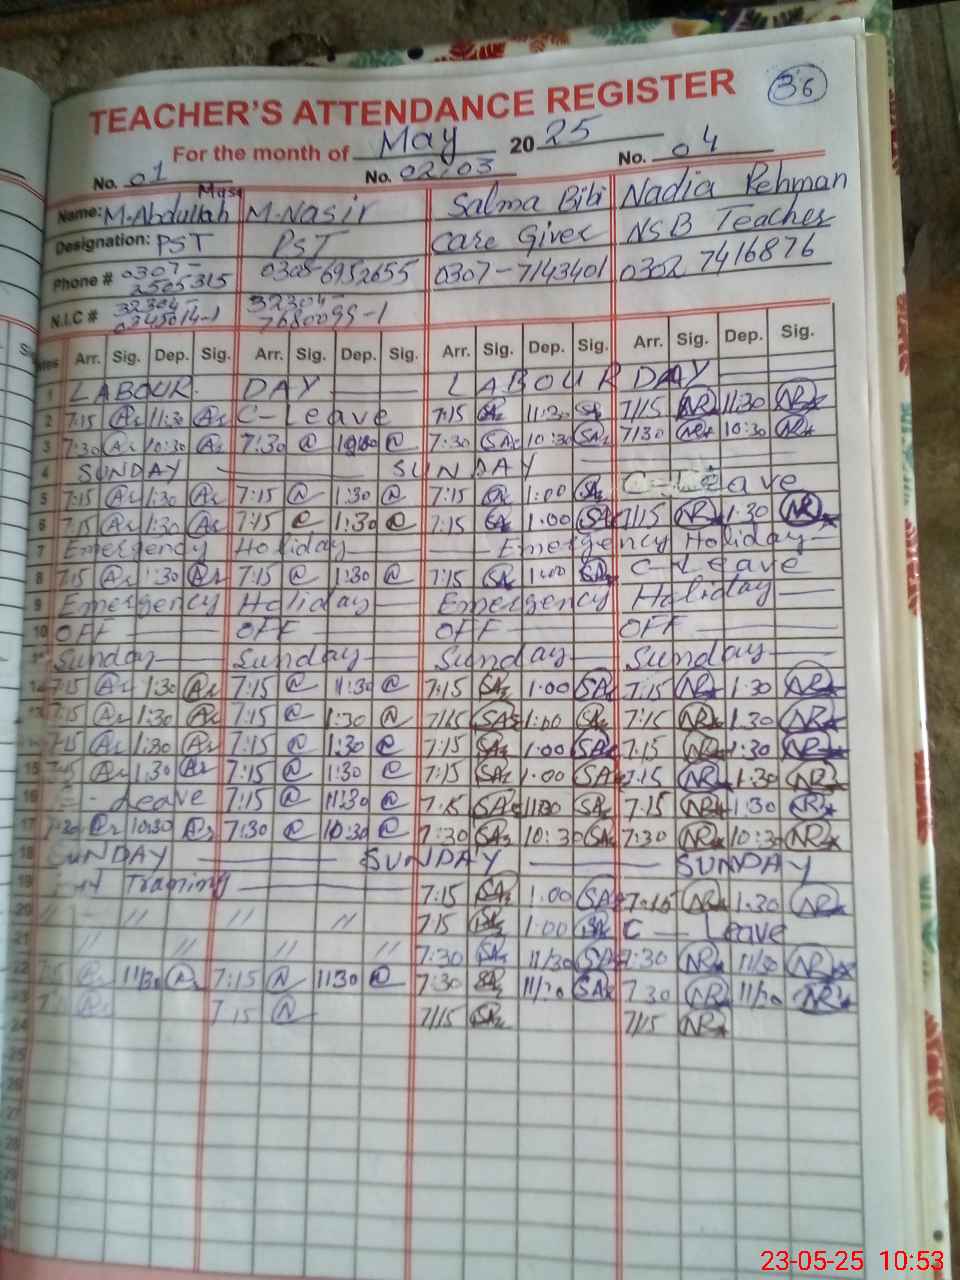 36
TEACHER'S ATTENDANCE REGISTER
For the month of May 2025
No. 01 No. 02/03 No. 04
Name: M.Abdullah M.Nasir Salma Bibi Nadia Rehman
Designation: PST PST Care Giver NSB Teacher
Phone # 0307- 2505315 6952655 0307-7143401 0302 7416876
N.I.C # 32304- 32304-
Arr. Sig. Dep. Sig. Arr. Sig. Dep. Sig. Arr. Sig. Dep. Sig. Arr. Sig. Dep. Sig.
1 LABOUR DAY LABOUR DAY
2 7:15 Ar 11:30 Ar C-Leave 7:15 SA 11:30 SA 7/15 NR 11:30 NR
3 7:30 Ar 10:30 Ar 7:30 @ @ 7:30 SA 10:30 SA 7/30 NR 10:30 NR
4 SUNDAY SUNDAY
5 7:15 Ar 1:30 Ar 7:15 @ 1:30 @ 7:15 SA 1:00 SA C-Leave
6 7:15 Ar 1:30 Ar 7:15 @ 1:30 @ 7:15 SA 1:00 SA 7/15 NR 1:30 NR
7 Emergency Holiday Emergency Holiday
8 7:15 Ar 1:30 Ar 7:15 @ 1:30 @ 7:15 SA 1:00 SA C-Leave
9 Emergency Holiday Emergency Holiday
10 OFF OFF OFF OFF
Sunday Sunday Sunday Sunday
7:15 Ar 1:30 Ar 7:15 @ 11:30 @ 7:15 SA 1:00 SA 7:15 NR 1:30 NR
7:15 Ar 1:30 Ar 7:15 @ 1:30 @ 7/15 SA 1:00 SA 7:15 NR 1:30 NR
7:15 Ar 1:30 Ar 7:15 @ 1:30 @ 7:15 SA 1:00 SA 7:15 NR 1:30 NR
15 7:15 Ar 1:30 Ar 7:15 @ 1:30 @ 7:15 SA 1:00 SA 7:15 NR 1:30 NR
16 Leave 7:15 @ 11:30 @ 7:15 SA SA 7:15 NR 1:30 NR
17 7:30 Ar 10:30 Ar 7:30 @ 10:30 @ 7:30 SA 10:30 SA 7:30 NR 10:30 NR
18 SUNDAY SUNDAY SUNDAY
19 Training 7:15 SA 1:00 SA 7:15 NR 1:30 NR
20 // // // // 7:15 SA 1:00 SA C-Leave
21 // // // // 7:30 SA 11/30 SA 7:30 NR 11/30 NR
22 7:15 Ar 11/30 Ar 7:15 @ 1130 @ 7:30 SA SA 7 30 NR NR
23 Ar 7 15 @ 7/15 SA 7/15 NR
24
25
26
27
28
29
30
31
23-05-25 10:53